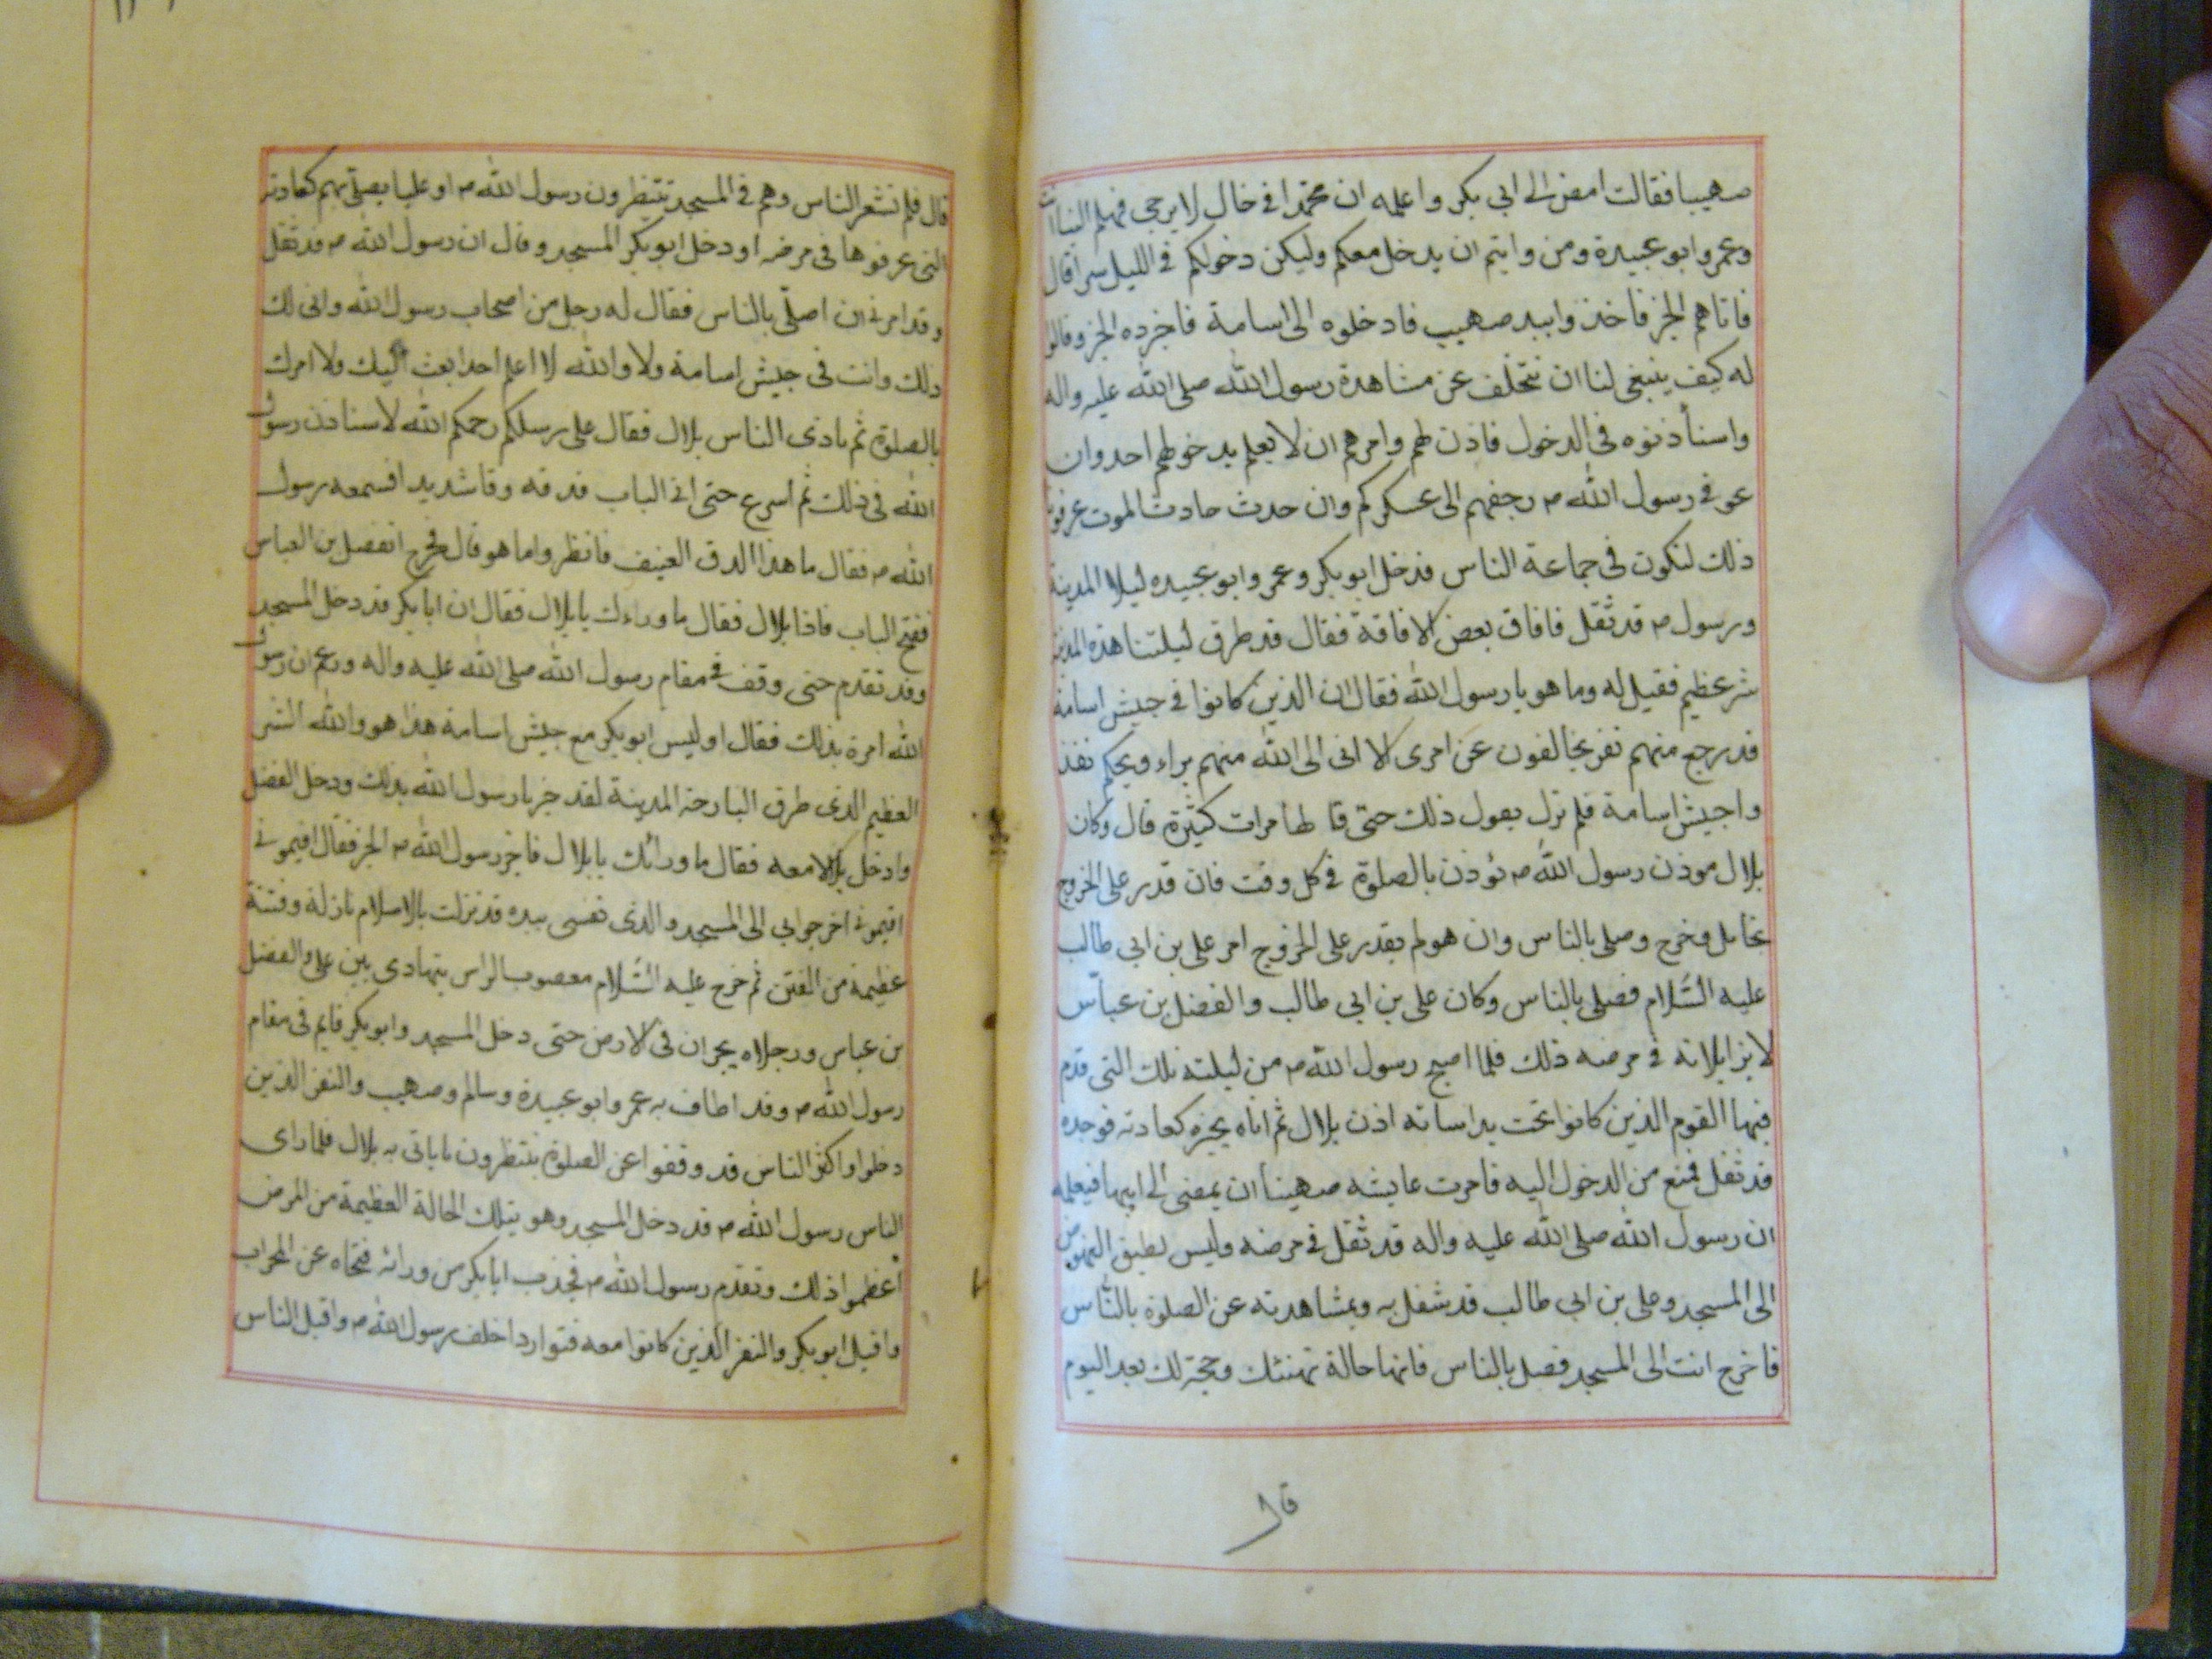 صهيبا فقالت امض الى ابي بكر واعلمه ان محمدا في حال لا يرجى فهلم الينا انت
وعمر وابو عبيدة ومن رايتم ان يدخل معكم وليكن دخولكم في الليل سرا قال
فاتاهم الخبر فاخذوا بيد صهيب فادخلوه الى اسامة فاخبره الخبر وقالوا
له كيف ينبغي لنا ان نتخلف عن مشاهدة رسول الله صلى الله عليه واله
واستأذنوه في الدخول فاذن لهم وامرهم ان لا يعلم بدخولهم احد وان
عوفي رسول الله م رجعتم الى عسكركم وان حدث حادث الموت عرفونا
ذلك لنكون في جماعة الناس فدخل ابو بكر وعمر وابو عبيده ليلا المدينة
ورسول م قد ثقل فافاق بعض الافاقة فقال قد طرق ليلتنا هذه المدينة
شر عظيم فقيل له وما هو يا رسول الله فقال ان الذين كانوا في جيش اسامة
قد رجع منهم نفر يخالفون عن امرى الا انى الى الله منهم براء ويحكم نفذ
وا جيش اسامة فلم يزل يقول ذلك حتى قالها مرات كثيرة قال وكان
بلال موذن رسول الله م يؤذن بالصلوة في كل وقت فان قدر على الخروج
تحامل وخرج وصلى بالناس وان هو لم يقدر على الخروج امر على بن ابي طالب
عليه السّلام فصلى بالناس وكان على بن ابي طالب والفضل بن عباس
لا يزايلانه في مرضه ذلك فلما اصبح رسول الله م من ليلته تلك التي قدم
فيها القوم الذين كانوا تحت يد اسامه اذن بلال ثم اتاه يخبره كعادته فوجده
قد ثقل فمنع من الدخول اليه فامرت عايشه صهيبا ان يمضى الى ابيها فيعلمه
ان رسول الله صلى الله عليه واله قد ثقل في مرضه وليس يطيق النهوض
الى المسجد وعلى بن ابي طالب قد شغل به وبمشاهدته عن الصلوة بالنّاس
فاخرج انت الى المسجد فصل بالناس فانها حالة تهنئك وحجة لك بعد اليوم
قال
قال فلم تشعر الناس وهم في المسجد ينتظرون رسول الله م او عليا يصلى بهم كعادته
التى عرفوها في مرضه اذ دخل ابو بكر المسجد وقال ان رسول الله م قد ثقل
وقد امرني ان اصلّى بالناس فقال له رجل من اصحاب رسول الله وانى لك
ذلك وانت في جيش اسامة ولا والله لا اعلم احدا بعث اليك ولا امرك
بالصلوة ثم نادى الناس بلال فقال على رسلكم رحمكم الله لاستاذن رسول
الله في ذلك ثم اسرع حتى اتى الباب فدقه دقا شديدا فسمعه رسول
الله م فقال ما هذا الدق العنيف فانظروا ما هو قال فخرج الفضل بن العباس
ففتح الباب فاذا بلال فقال ما وراءك يا بلال فقال ان ابا بكر قد دخل المسجد
وقد تقدم حتى وقف في مقام رسول الله صلى الله عليه واله وزعم ان رسول
الله امره بذلك فقال اوليس ابو بكر مع جيش اسامة هذا هو والله الشر
العظيم الذى طرق البارحة المدينة لقد خبرنا رسول الله بذلك ودخل الفضل
وادخل بلالا معه فقال ما ورائك يا بلال فاخبر رسول الله م الخبر فقال اقيموني
اقيموني اخرجوا بي الى المسجد والذى نفسى بيده قد نزلت بالاسلام نازلة وفتنة
عظيمة من الفتن ثم خرج عليه السّلام معصوب الراس يتهادى بين على والفضل
بن عباس ورجلاه يجران في الارض حتى دخل المسجد وابو بكر قايم في مقام
رسول الله م وقد اطاف به عمر وابو عبيدة وسالم وصهيب والنفر الذين
دخلوا واكثر الناس قد وقفوا عن الصلوة ينتظرون ما ياتى به بلال فلما راى
الناس رسول الله م قد دخل المسجد وهو بتلك الحالة العظيمة من المرض
أعظموا ذلك وتقدم رسول الله م فجذب ابا بكر من ورائه فنحاه عن المحراب
واقبل ابو بكر والنفر الذين كانوا معه فتواروا خلف رسول الله م واقبل الناس